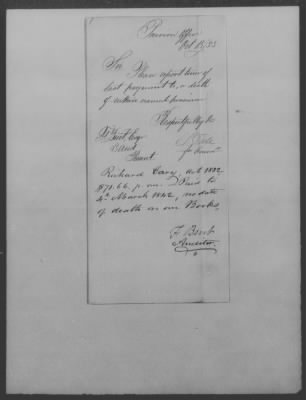 Pension Office
Oct 15/53
Sir, Please report term of
last payment to, or death
of within named pensioner
Respectfully &c
for Comm
Present
Richard Cary, act 1832
$71.66 p. an. Paid to
4th March 1842, no date
of death on our Books,